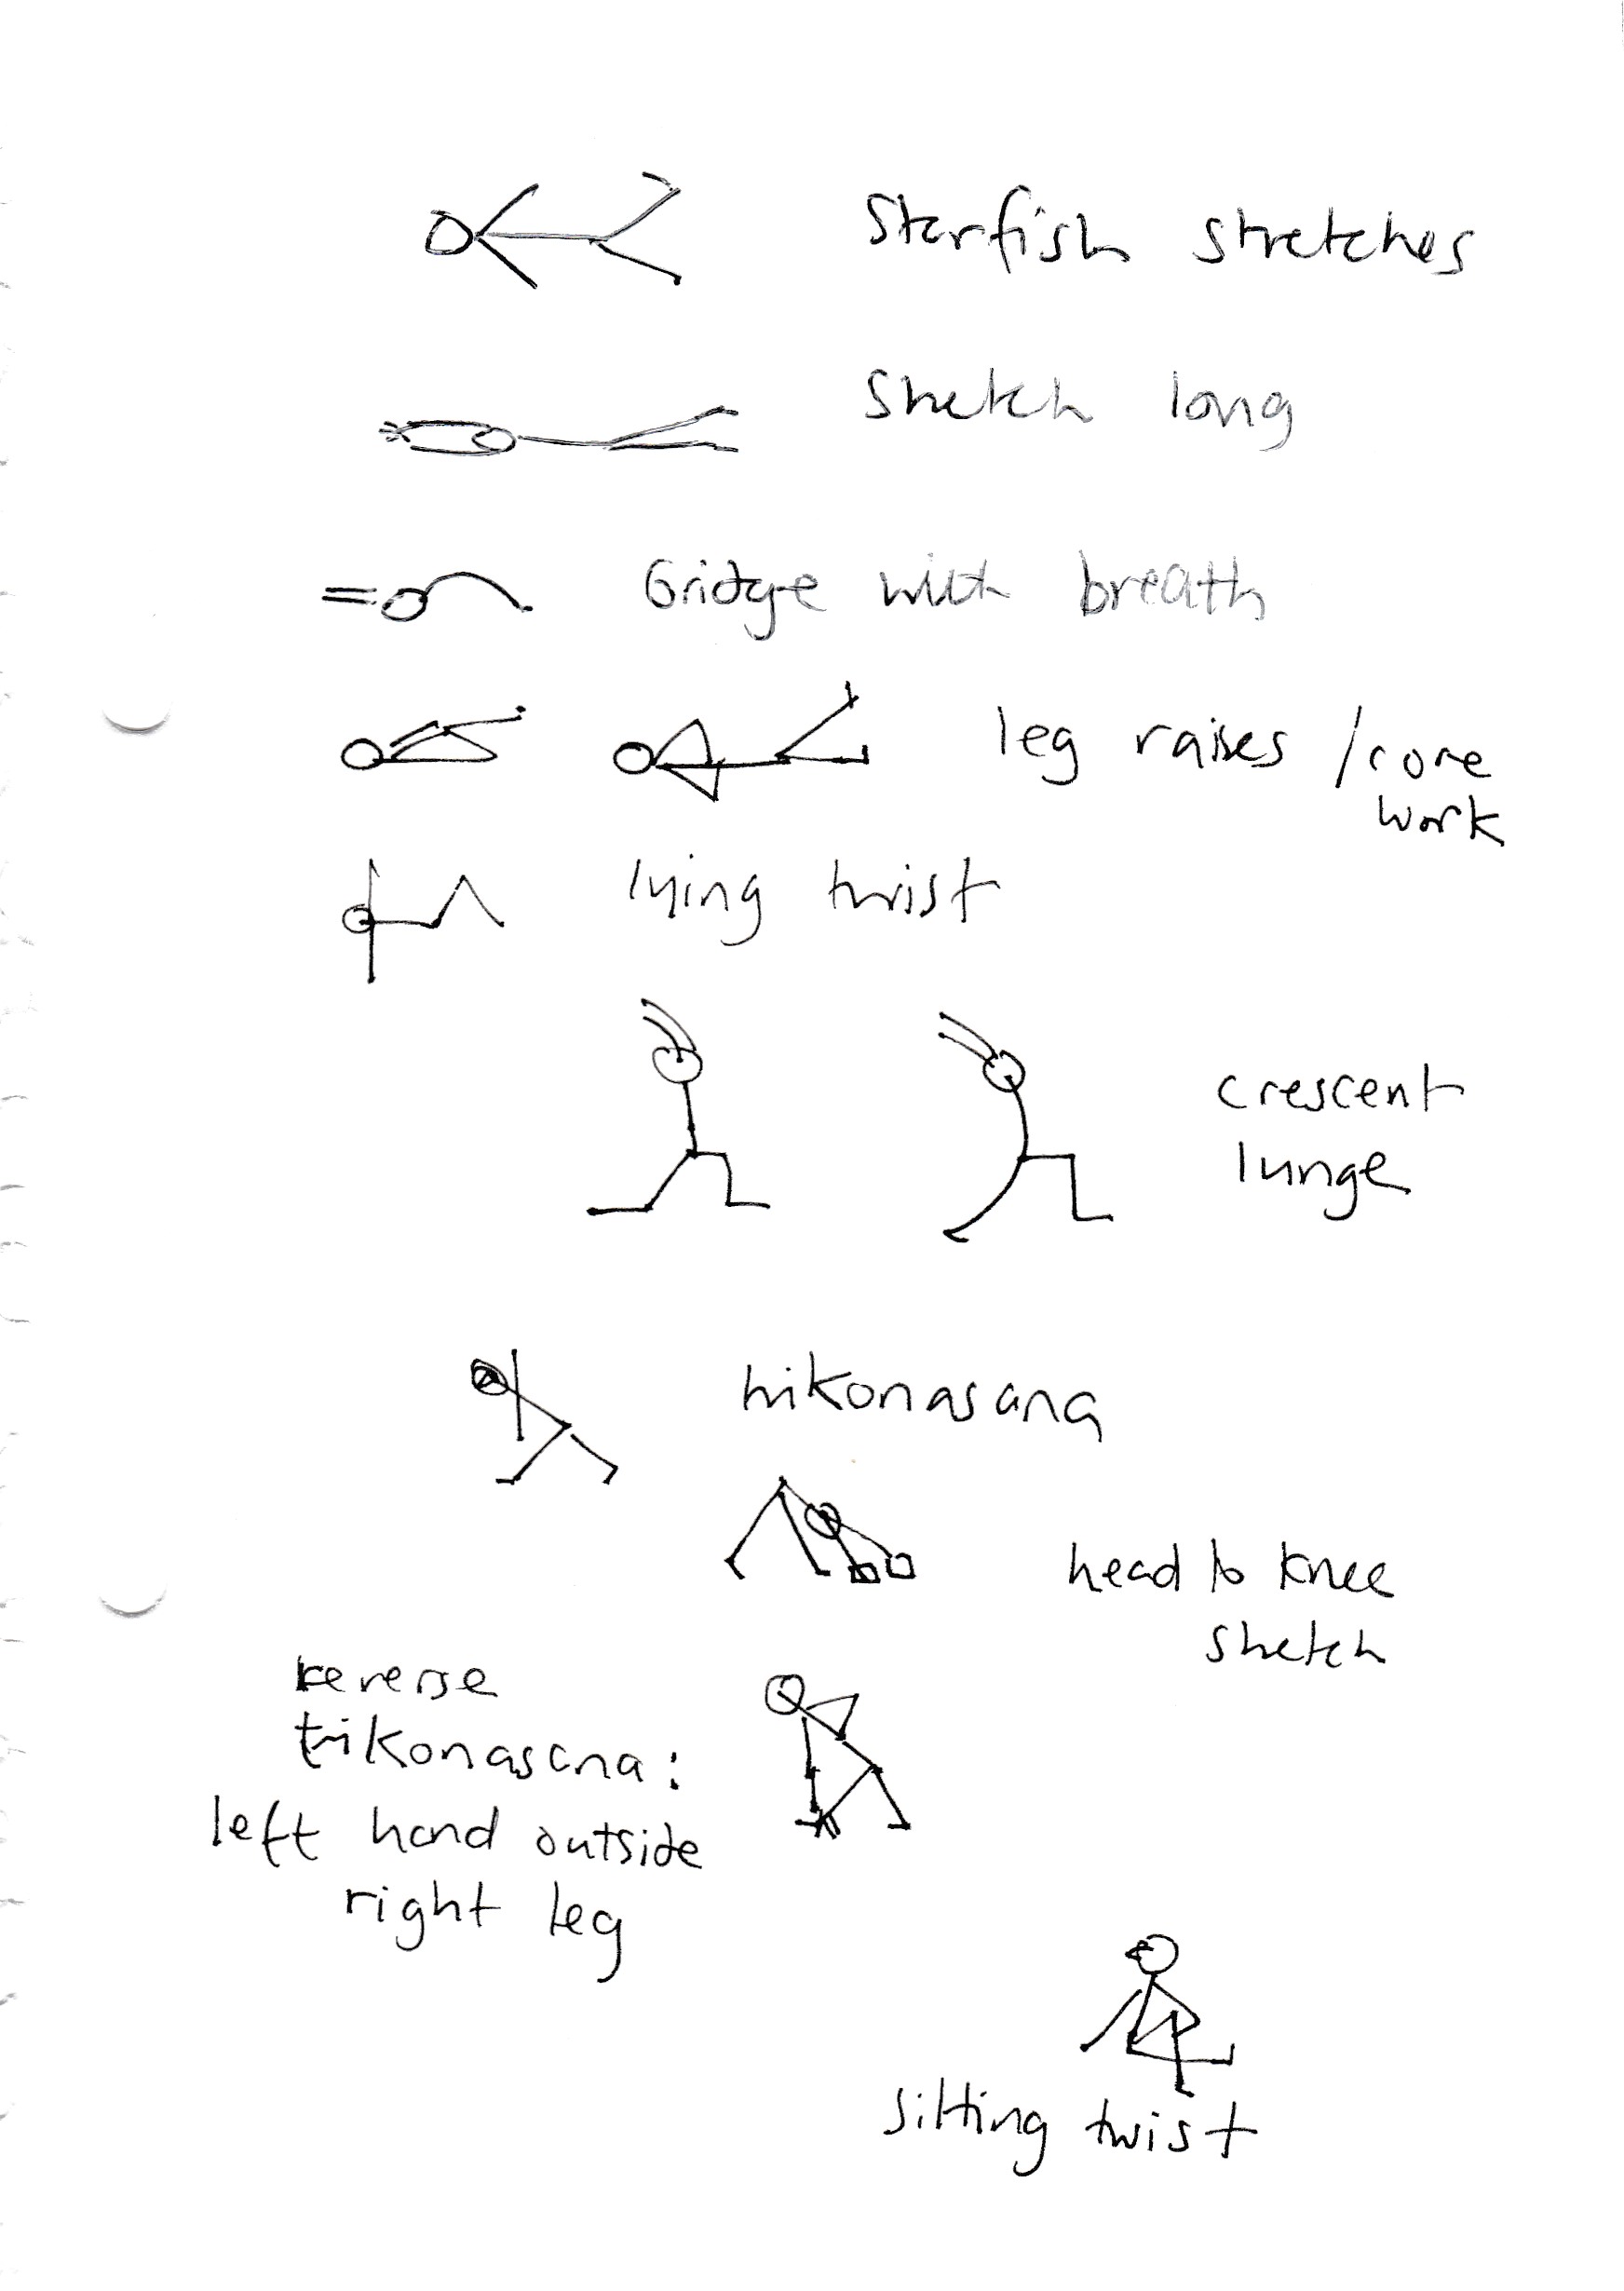 Starfish stretches
Stretch long
Bridge with breath
leg raises / core
work
lying twist
crescent
lunge
trikonasana
head to knee
stretch
reverse
trikonasana:
left hand outside
right leg
sitting twist